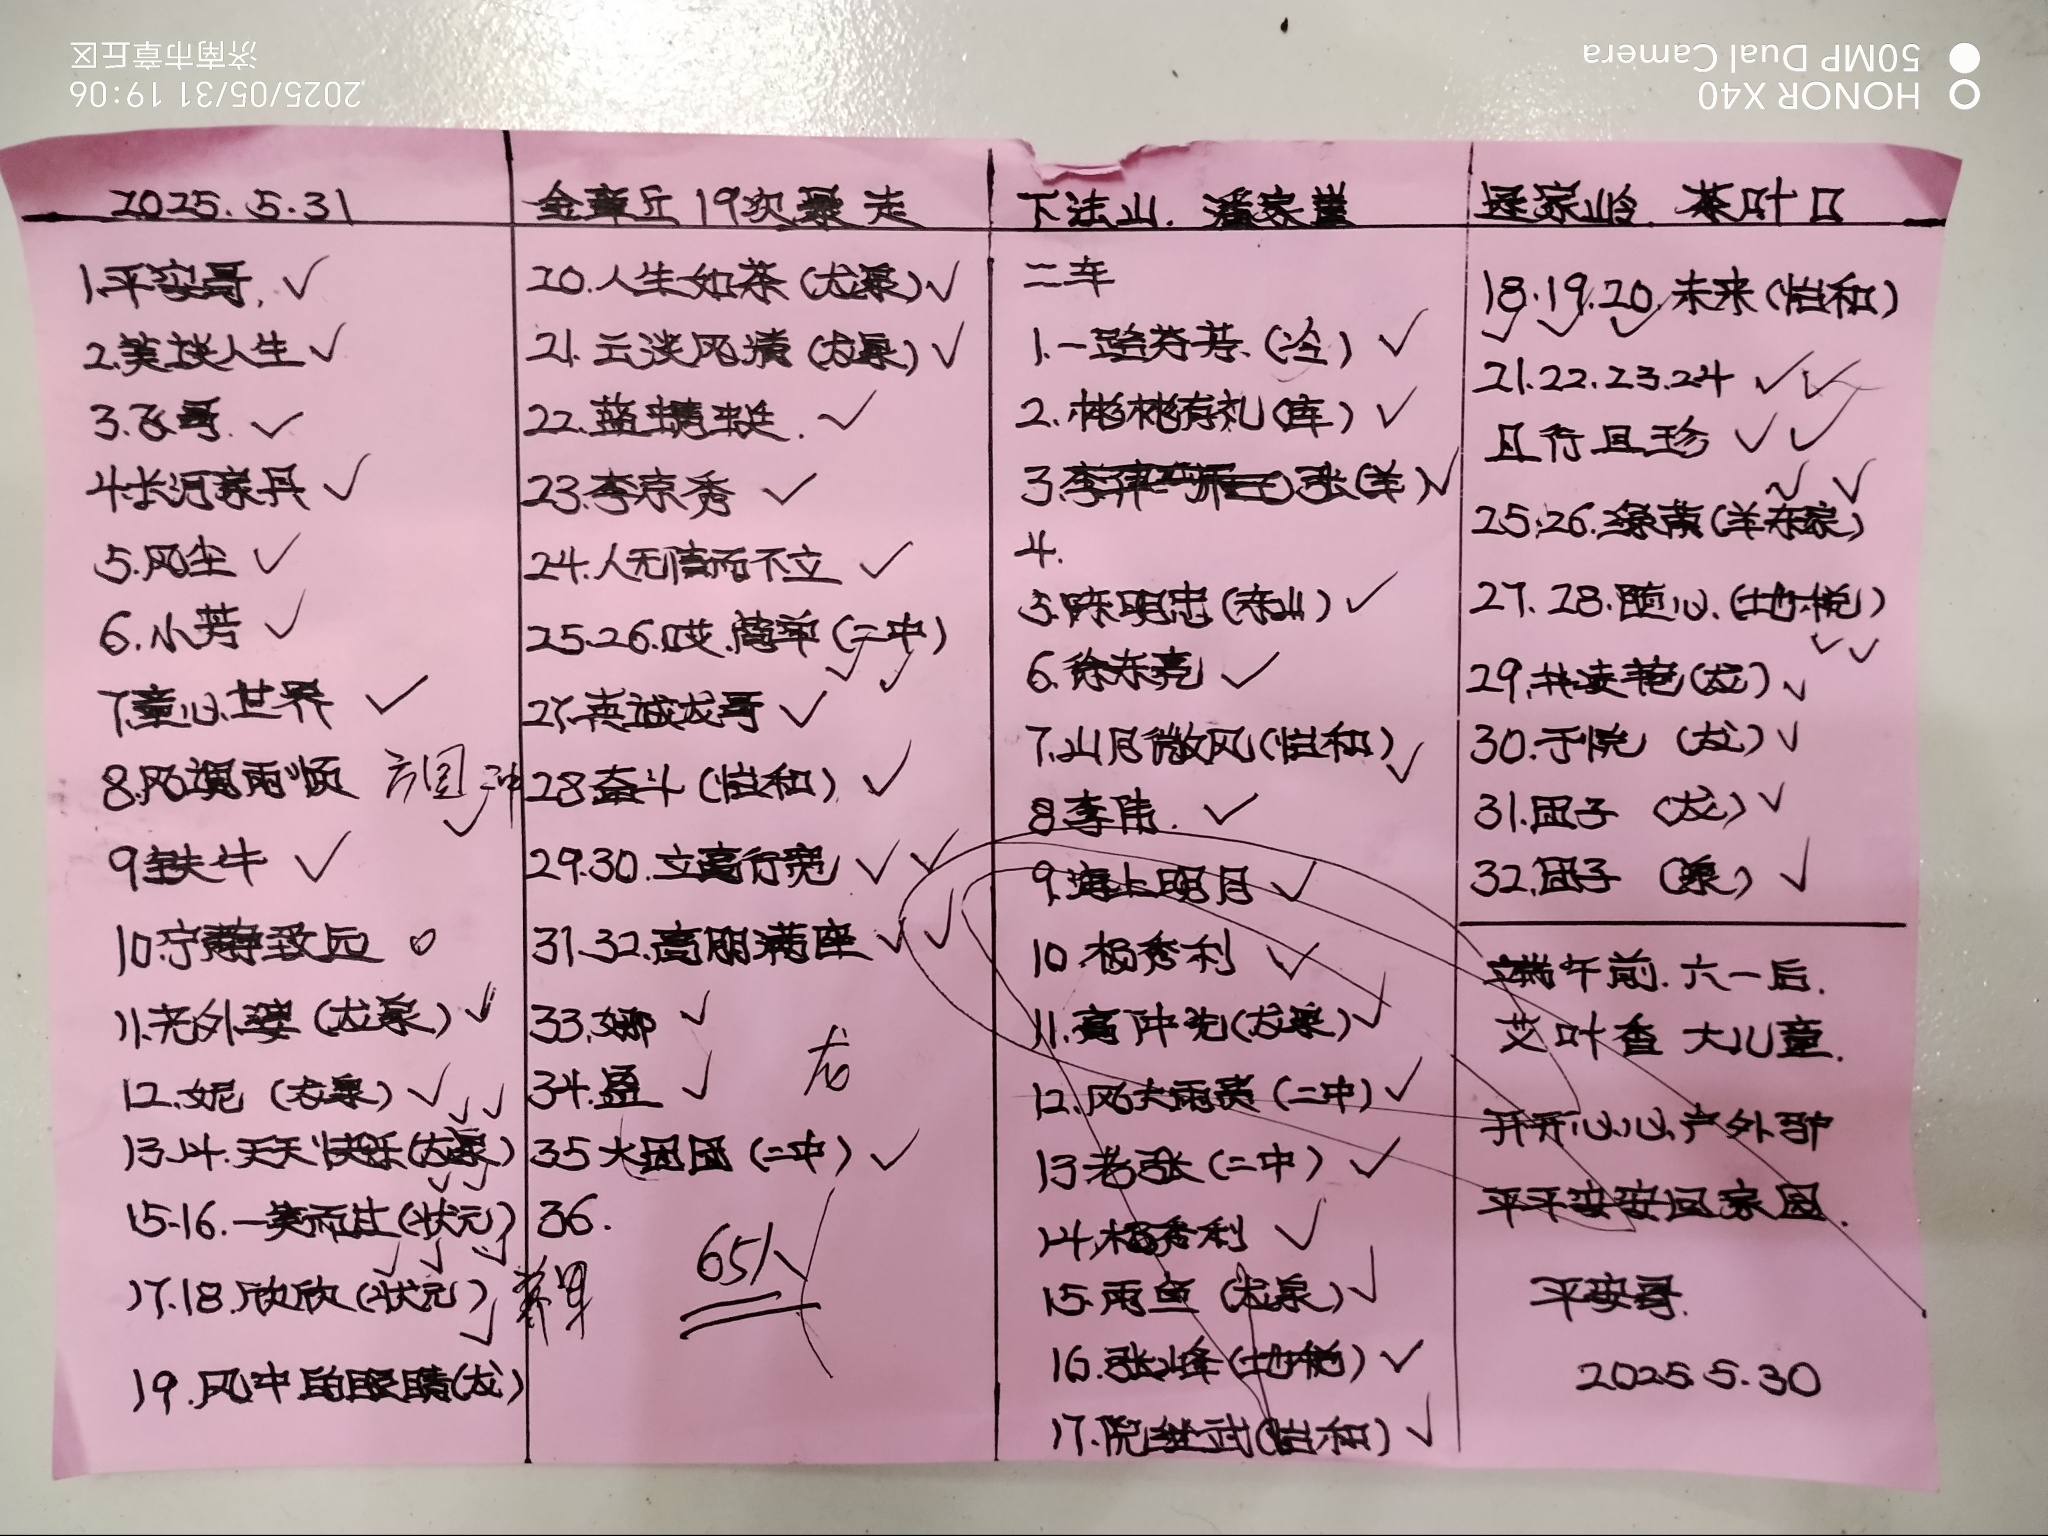 2025.5.31
1.平安哥. ✓
2.笑谈人生 ✓
3.飞哥. ✓
4.长河家兵 ✓
5.风尘 ✓
6.小芳 ✓
7.童心世界 ✓
8.风调雨顺 方圆 ✓
9.铁牛 ✓
10.宁静致远 o
11.老外婆(龙泉) ✓
12.妮(龙泉) ✓
13.14.天天快乐(龙泉) ✓✓
15-16.一笑而过(状元) ✓✓
17.18.欣欣(状元) ✓✓
19.风中的眼睛(龙) ✓
金章丘19次暴走
20.人生如茶(龙泉) ✓
21.云淡风清(龙泉) ✓
22.蓝蜻蜓. ✓
23.李京秀 ✓
24.人无信而不立 ✓
25.26.哎.简单(二中) ✓✓
27.英诚龙哥 ✓
28奋斗(怡和) ✓
29.30.立高行宽 ✓✓
31.32.高朋满座 ✓✓
33.娜 ✓
34.盈 ✓ 龙
35大团团(二中) ✓
36.
65人
下法山. 潘家崖
二车
1.一路芬芳.(冶) ✓
2.彬彬有礼(库) ✓
3.李 张(羊) ✓
4.
5.陈明忠(东山) ✓
6.徐东亮 ✓
7.山月微风(怡和) ✓
8.李伟. ✓
9.海上明月 ✓
10.杨秀利 ✓
11.高仲先(龙泉) ✓
12.风大雨疾(二中) ✓
13.老张(二中) ✓
14.杨秀利 ✓
15.雨鱼(龙泉) ✓
16.张峰(地悦) ✓
17.阮继武(怡和) ✓
逯家岭 茶叶口
18.19.20.未来(怡和)
✓ ✓ ✓
21.22.23.24 ✓✓
且行且珍 ✓✓
25.26.绿茵(羊东家) ✓✓
27.28.随心.(地悦) ✓✓
29.共读 (龙) ✓
30.于悦(龙) ✓
31.团子(龙) ✓
32.团子(泉) ✓
端午前.六一后.
艾叶香 大儿童.
开开心心户外驴
平平安安回家园.
平安哥.
2025.5.30
2025/05/31 19:06
济南市章丘区
HONOR X40
50MP Dual Camera